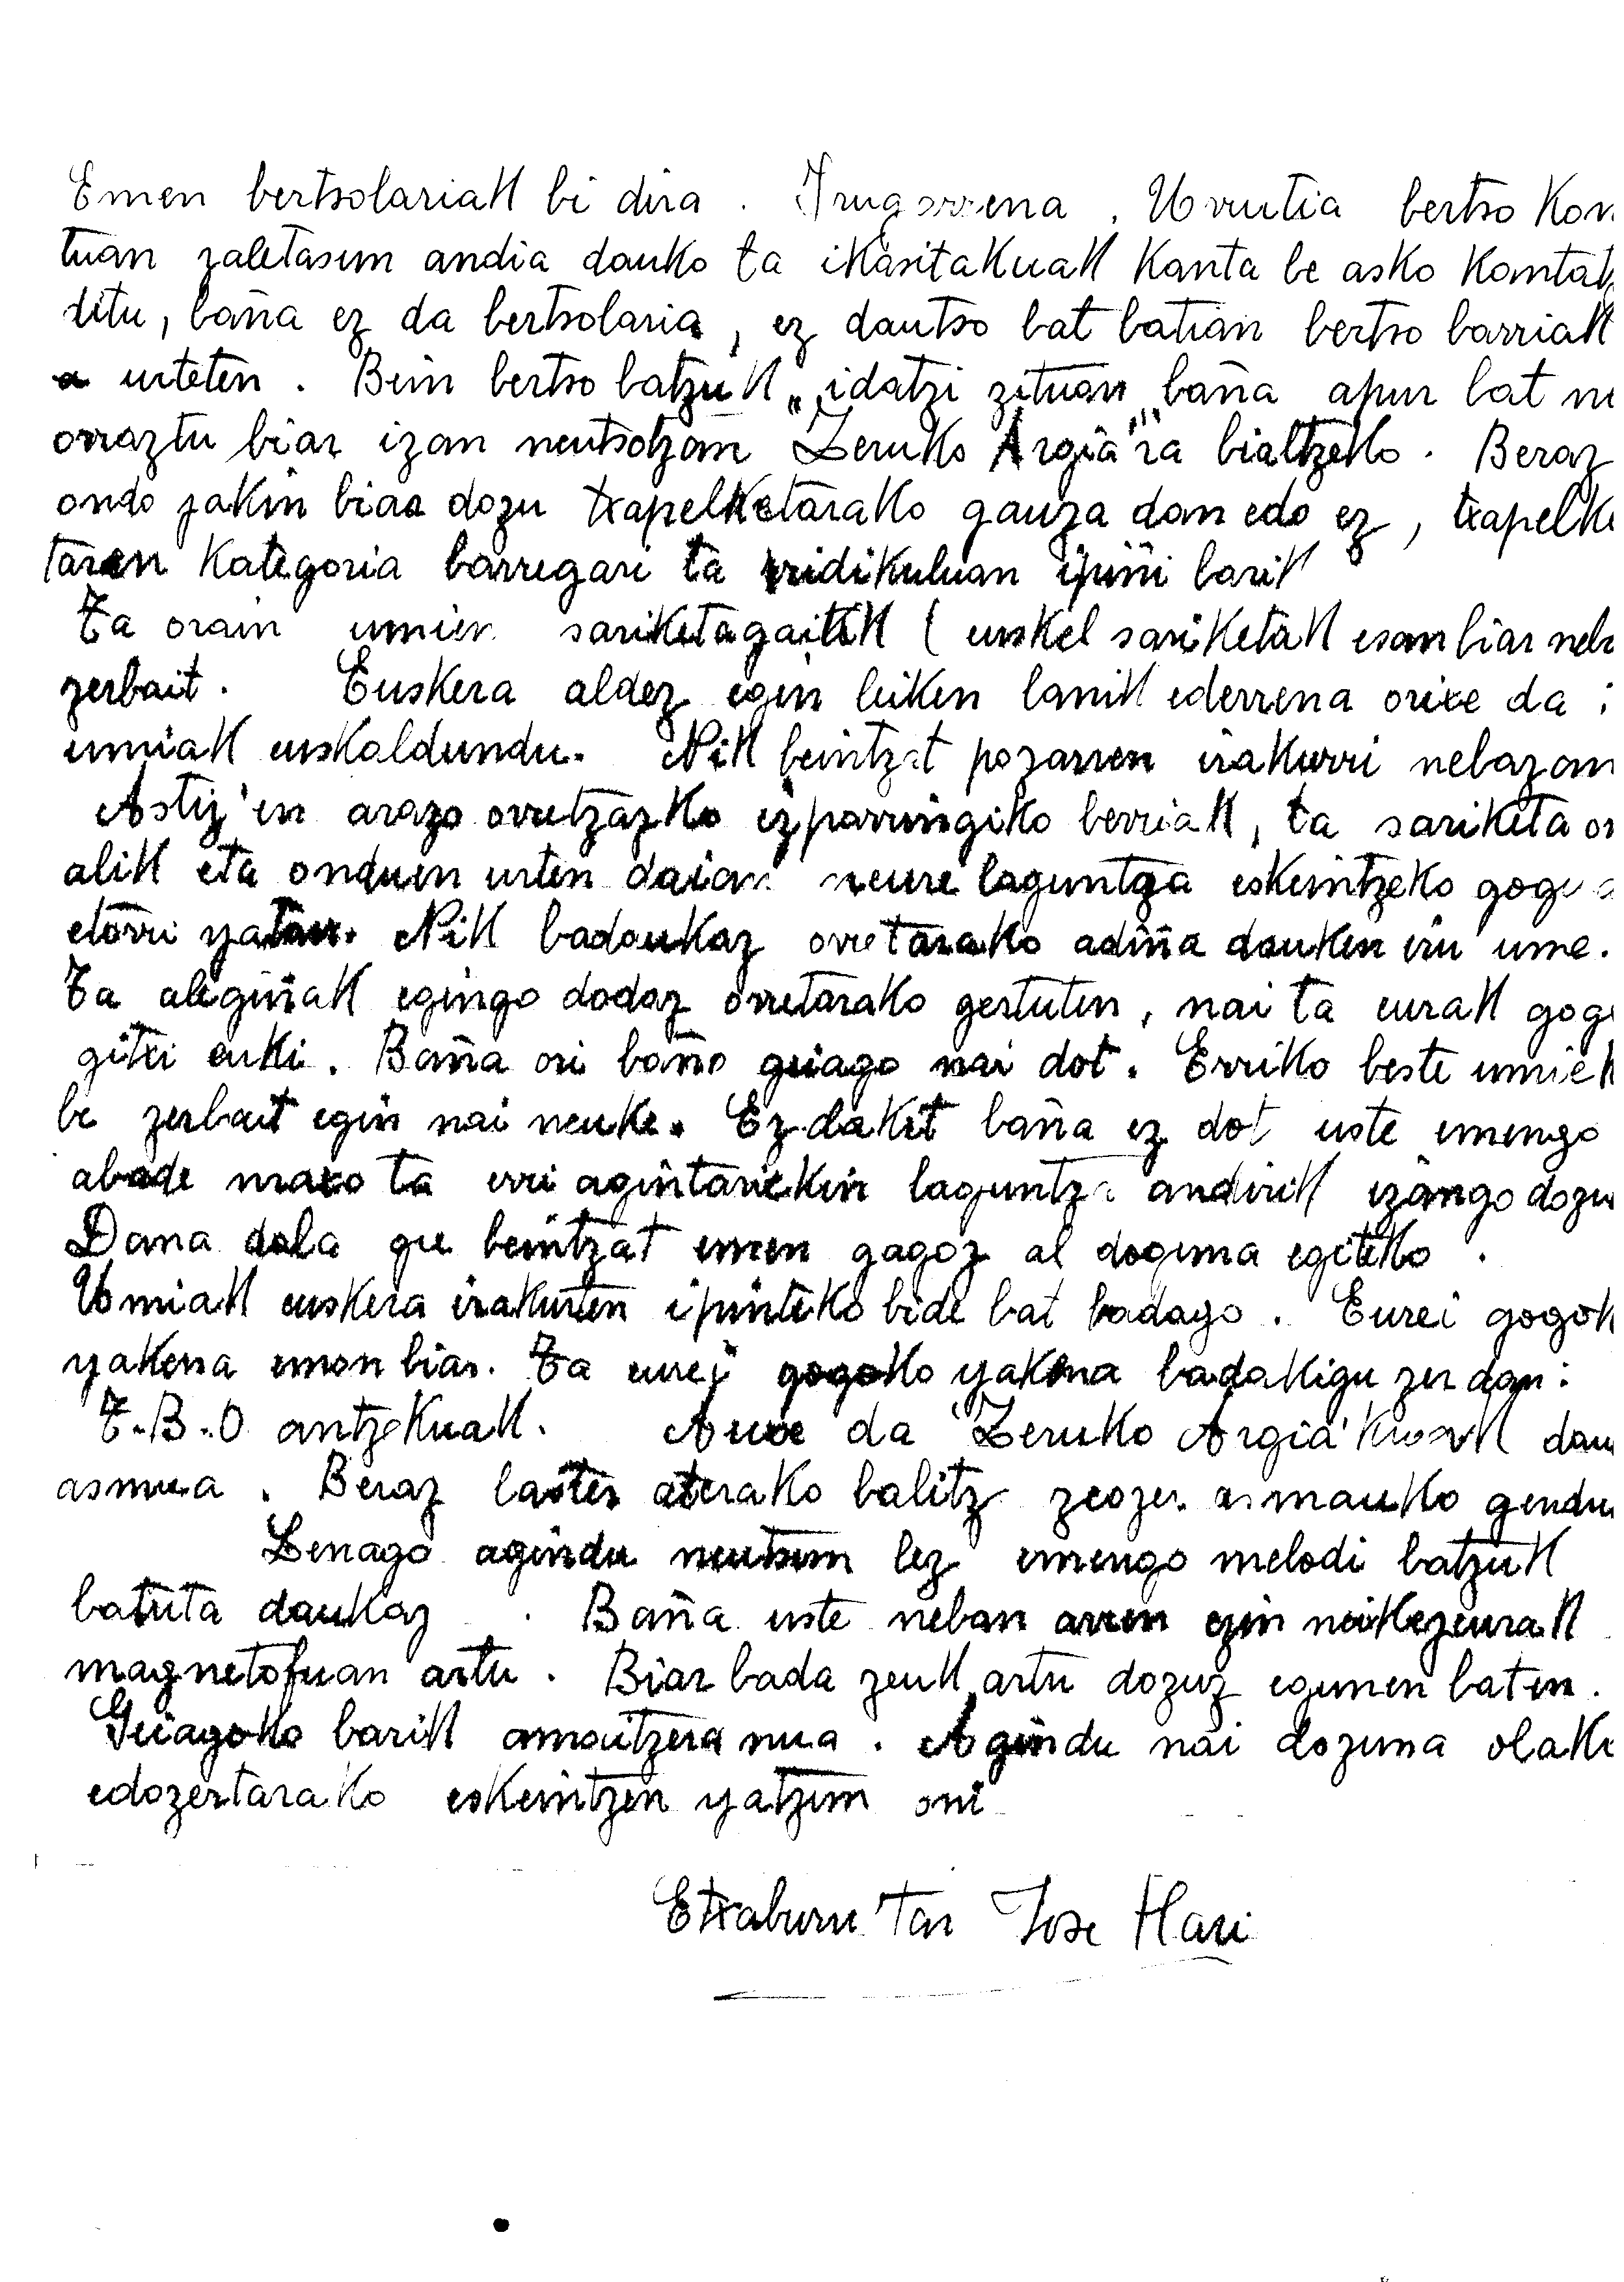 Emen bertsolariak bi dira. Irugarrena, Urrutia bertso kon
tuan zaletasun andia dauko ta ikasitakuak kanta be asko kantat
ditu, baña ez da bertsolaria, ez dautso bat batian bertso barriak
a urteten. Bein bertso batzuk idatzi zituan baña apur bat
orraztu biar izan neutsotzan "Zeruko Argia"ra bialtzeko. Beraz
ondo jakin biar dozu txapelketarako gauza dan edo ez, txapelke
taren kategoria barregari ta rridikuluan ipiñi barik
Ta orain umien sariketagaitik (euskel sariketak esan biar
zerbait. Euskera aldez egin leiken lanik ederrena orixe da :
umiak euskaldundu. Nik beintzat pozarren irakurri nebazan
Astiz'en arazo orretzazko izparringiko berriak, ta sariketa
alik eta onduen urten daian neure laguntza eskeintzeko gogua
etorri yatan. Nik badaukaz orretarako adiña dauken iru ume.
Ta alegiñak egingo dodaz orretarako gertuten, nai ta eurak
gitxi euki. Baña ori baño guiago nai dot. Erriko beste umiek
be zerbait egin nai neuke. Ez dakit baña ez dot uste emengo
abade maxo ta erri agintariekin laguntza andirik izango
Dana dala gu beintzat emen gagoz al doguna egiteko.
Umiak euskera irakurten ipinteko bide bat badago. Eurei
yakena emon biar. Ta eurej gogoko yakena badakigu zer dan:
T.B.O antzekuak. Auxe da "Zeruko Argia"
asmua. Beraz laster aterako balitz zeozer asmauko
Lenago agindu neutsun lez emengo melodi batzuk
batuta daukaz. Baña uste neban arren ezin neikezeurak
magnetofuan artu. Biar bada zeuk artu dozuz egunen baten.
Guiagoko barik amaitzera nua. Agindu nai dozuna
edozertarako eskeintzen yatzun oni
Etxaburu'tar Jose Mari